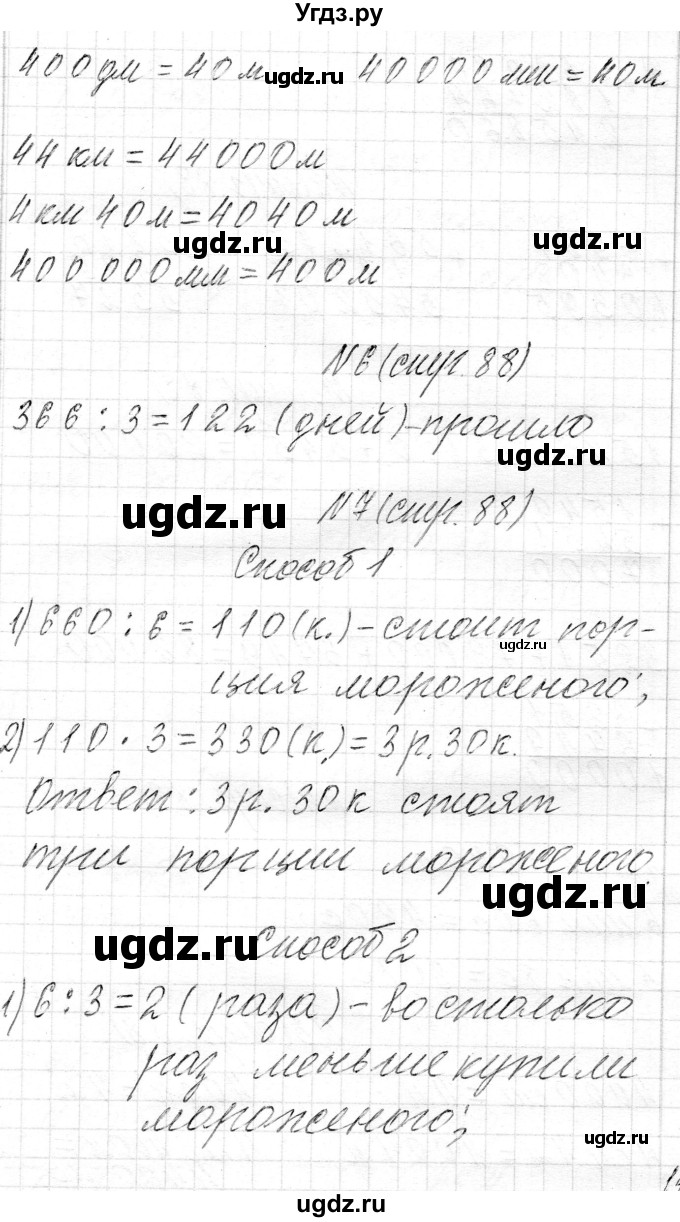 Угдз.ру
400дм = 40м 40000мм = 40м
ugdz.ru
44 км = 44000м
4км 40м = 4040м
ugdz.ru ugdz.ru
400 000мм = 400м
N6 (стр. 88)
366 : 3 = 122 (дней) - прошло
ugdz.ru
ugdz.ru N7 (стр. 88)
Способ 1
1) 660 : 6 = 110 (к.) - стоит пор-
ugdz.ru
ция мороженого;
2) 110 · 3 = 330 (к.) = 3р. 30к.
Ответ: 3р. 30к стоят
три порции мороженого.
ugdz.ru
ugdz.ru Способ 2
1) 6 : 3 = 2 (раза) - во столько
раз меньше купили
мороженого;
ugdz.ru
ugdz.ru